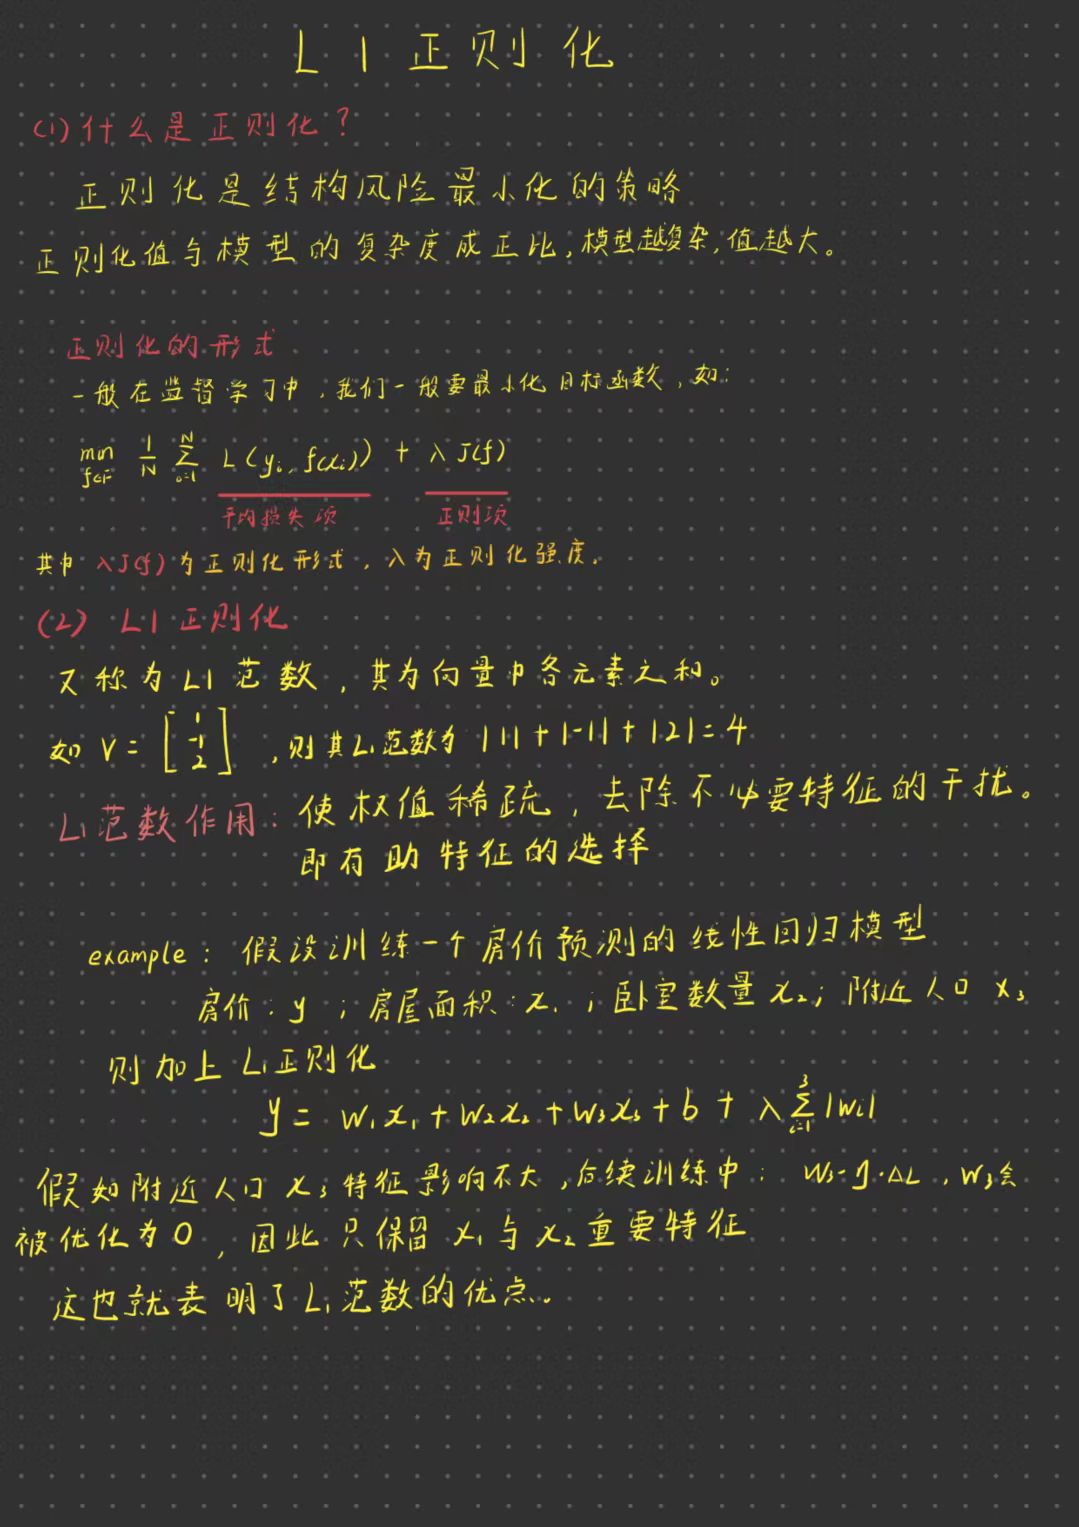 L1正则化
(1)什么是正则化?
正则化是结构风险最小化的策略
正则化值与模型的复杂度成正比,模型越复杂,值越大。
正则化的形式
一般在监督学习中,我们一般要最小化目标函数,如:
min f∈F 1/N N∑i=1 L(yi, f(xi)) + λJ(f)
平均损失项 正则项
其中 λJ(f)为正则化形式,λ为正则化强度.
(2) L1正则化
又称为L1范数,其为向量中各元素之和。
如 V = [1 -1 2],则其L1范数为 |1| + |-1| + |2| = 4
L1范数作用: 使权值稀疏,去除不必要特征的干扰。
即有助特征的选择
example: 假设训练一个房价预测的线性回归模型
房价:y ; 房屋面积:x1 ; 卧室数量x2; 附近人口 x3
则加上L1正则化
y = w1x1 + w2x2 + w3x3 + b + λ 3∑i=1 |wi|
假如附近人口x3特征影响不大,后续训练中: W3-η·ΔL,W3会
被优化为0,因此只保留x1与x2重要特征
这也就表明了L1范数的优点.